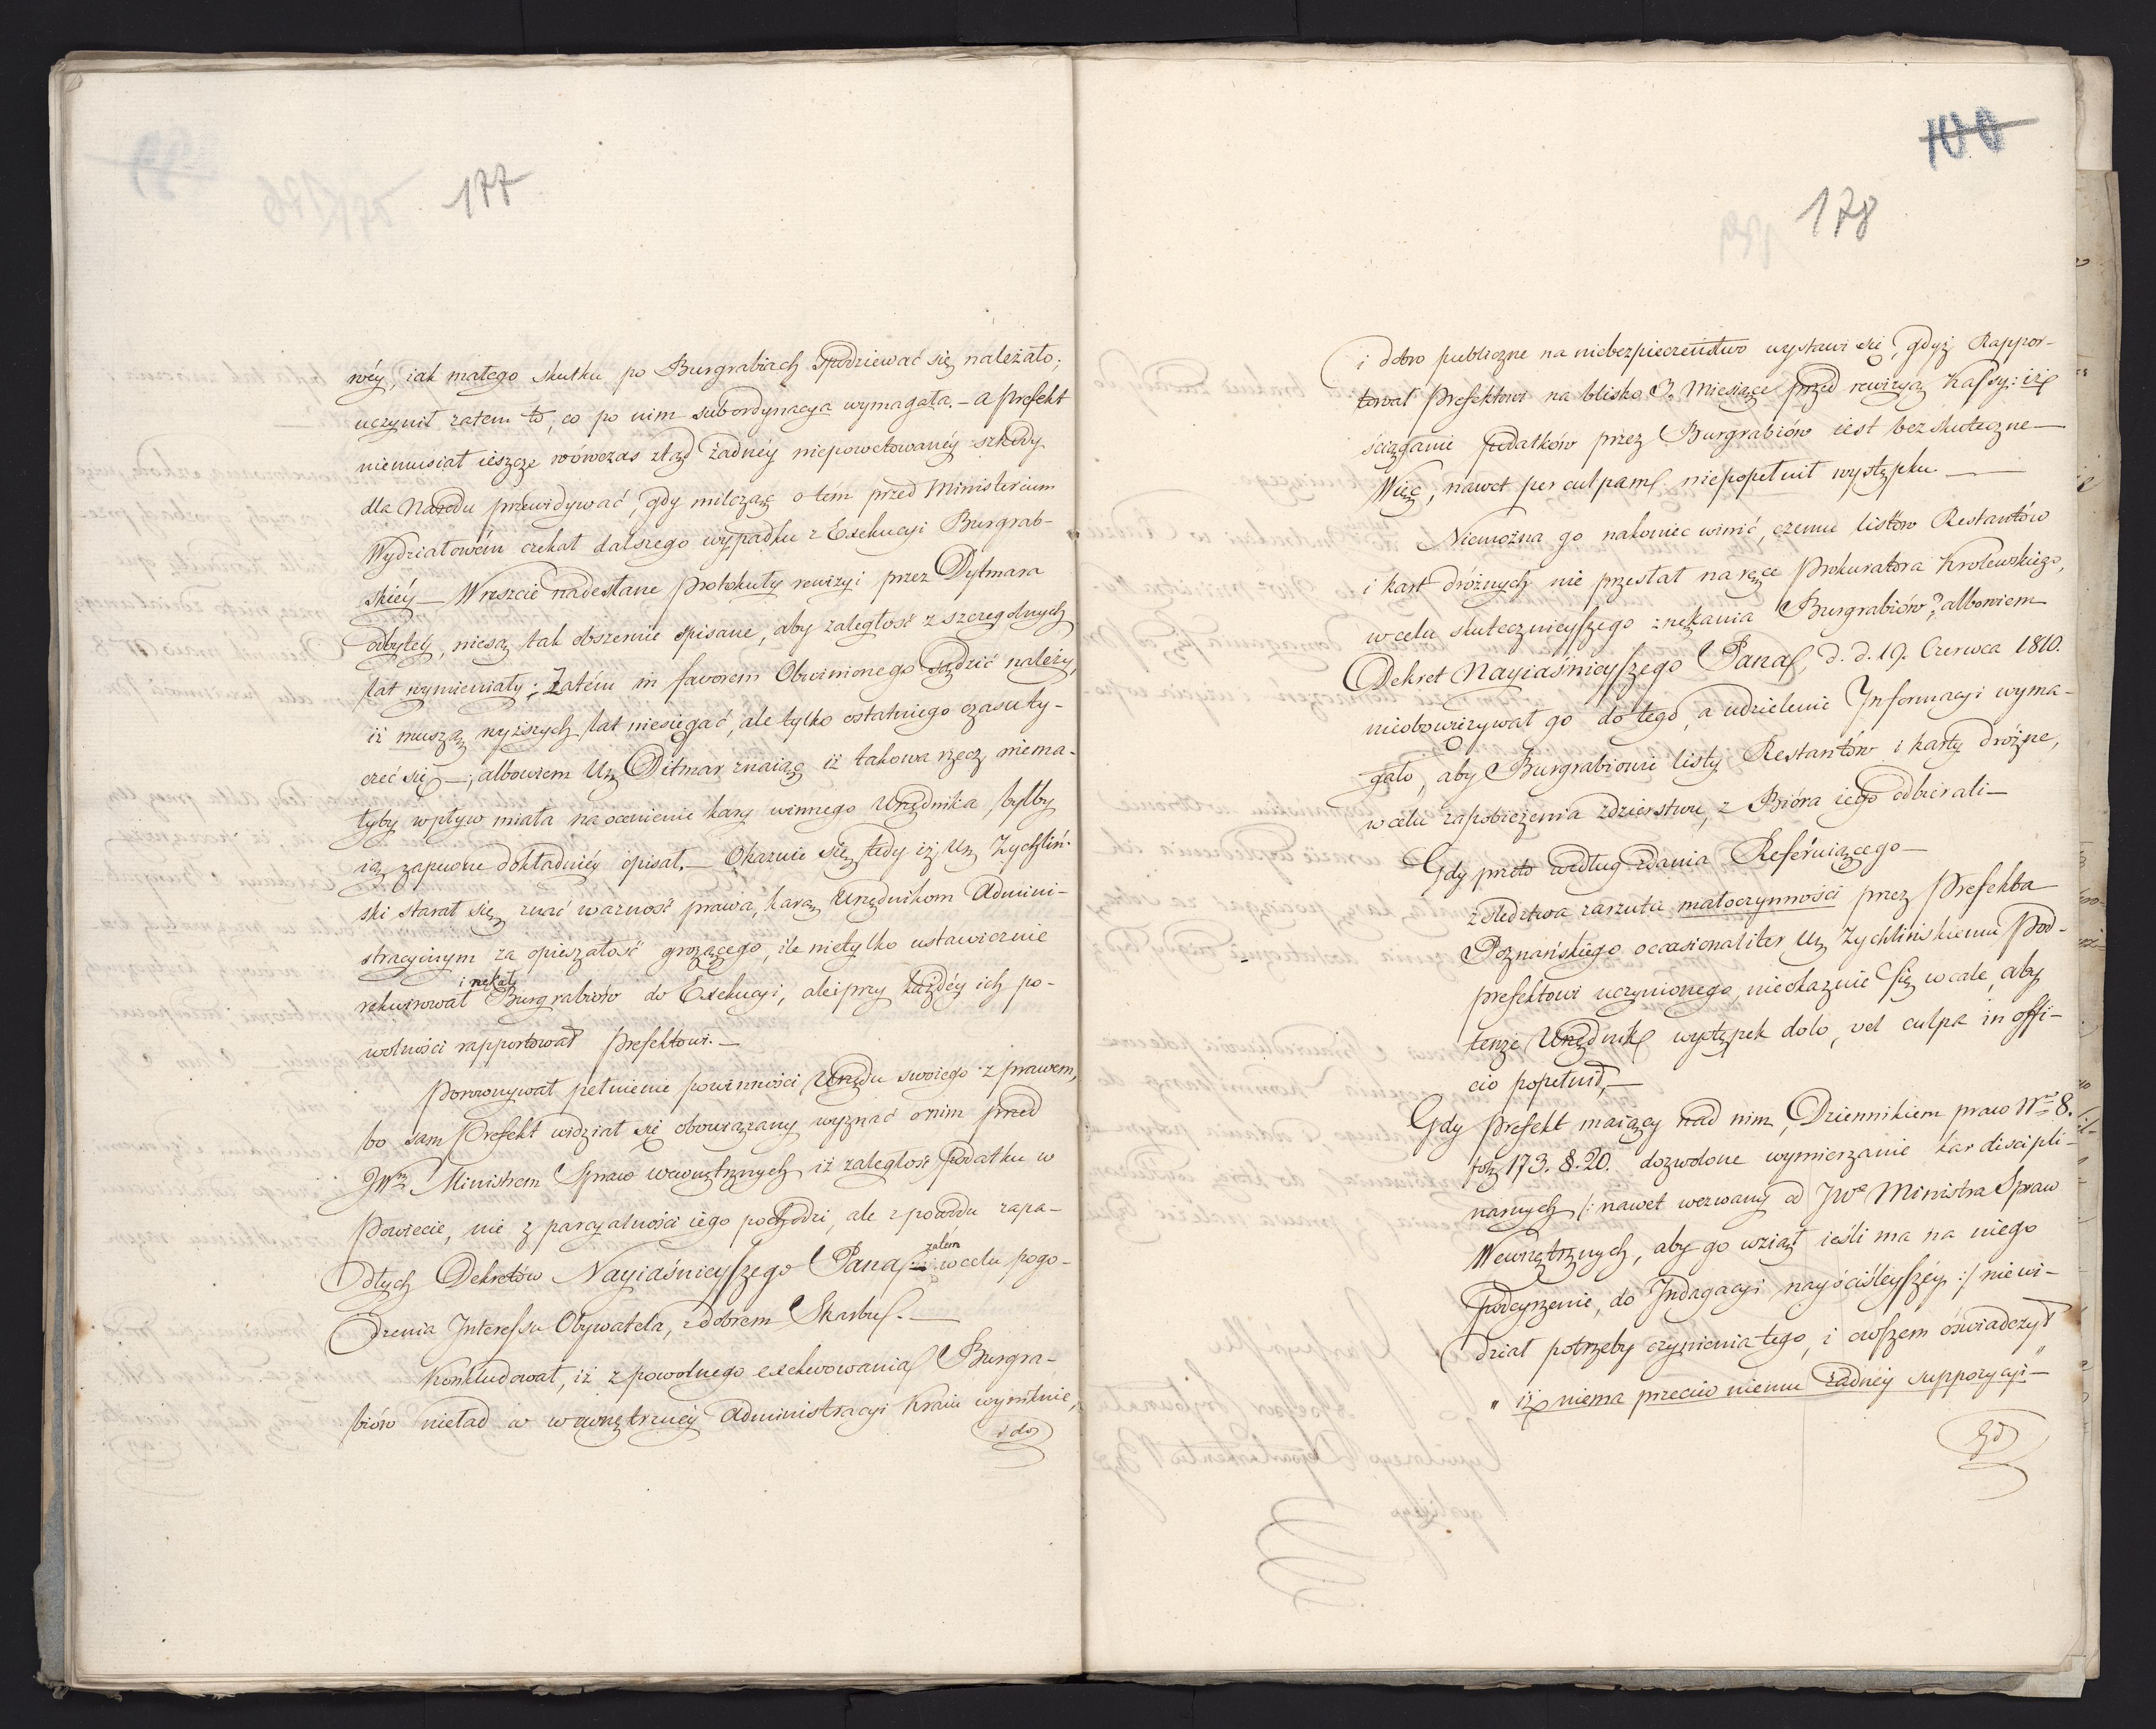 177
wéy, iak małego skutku po Burgrabiach spodziewać się należało;
uczynił zatem to, co po nim subordynacya wymagała. – a Prefekt
niemusiał ieszcze wówczas ztąd żadnéy niepowetowanéy szkody
dla Narodu przewidywać, gdy milcząc o tém przed Ministerium
Wydziałowém czekał dalszego wypadku z Exekucyi Burgrab-
skiéy – Wreszcie nadesłane Protokuły rewizyi przez Dytmara
odbytéy, niesą tak obszernie spisane, aby zaległość z szczególnych
lat wymieniały; Zatém in favorem Obwinionego sądzić należy,
iż muszą wyższych lat niesięgać, ale tylko ostatniego czasu ty-
czeć się –; albowiem Ur. Ditmar znaiąc iż takowa rzecz niema-
łyby wpływ miała na ocenienie kary winnego Urzędnika, byłby
ią zapewne dokładniéy opisał. – Okazuie się tedy iż Ur. Zychliń-
ski starał się znać ważność prawa, karą Urzędnikom Admini-
stracyinym za opieszałość grożącego, ile nietylko ustawicznie
i nękał
rekwirował Burgrabiów do Exekucyi, ale i przy każdéy ich po-
wolności rapportował Prefektowi. –
Porownywał pełnienie powinności Urzędu swoiego z prawem,
bo sam Prefekt widział się obowiązany wyznać o nim przed
JWm Ministrem Spraw wewnętrznych iż zaległość Podatku w
Powiecie, nie z parcyalności iego pochodzi, ale z powodu zapa-
zatém
dłych Dekretów Nayiaśnieyszego Pana w celu pogo-
dzenia Interessu Obywatela, z dobrem Skarbu. –
Konkludował, iż z powolnego exekwowania Burgra-
biów nieład w wewnętrznéy Administracyi Kraiu wyniknie,
i do
100
178
i dobro publiczne na niebezpieczeństwo wystawi się, gdyż Rappor-
tował Prefektowi na blisko 3. Miesiące przed rewizyą Kassy: iż
ściąganie podatków przez Burgrabiów iest bezskuteczne –
Więc, nawet per culpam niepopełnił występku –
Niemożna go nakoniec winić, czemu listów Restantów
i kart dróżnych nie przesłał na ręce Prokuratora Krolewskiego,
w celu skutecznieyszego znękania Burgrabiów? albowiem
Dekret Nayiaśnieyszego Pana, d. d. 19. Czerwca 1810.
nieobowiązywał go do tego, a udzielenie Informacyi wyma-
gało, aby Burgrabiowie listy Restantów i karty dróżne,
w celu zapobieżenia zdzierstwu, z Bióra iego odbierali –
Gdy przeto według zdania Referuiącego –
z śledztwa zarzutu małoczynności przez Prefekta
Poznańskiego occasionaliter Ur. Zychlińskiemu Pod-
prefektowi uczynionego, nieokazuie się wcale, aby
tenże Urzędnik występek dolo, vel culpa in offi-
cio popełnił, –
Gdy Prefekt maiący nad nim, Dziennikiem praw Nro 8.
fol. 173. §. 20. dozwolone wymierzanie kar discipli-
narnych /: nawet wezwany od JWo Ministra Spraw
Wewnętrznych, aby go wziął ieśli ma na niego
podeyrzenie, do Indagacyi nayściśleyszéy :/ niewi-
dział potrzeby czynienia tego, i owszem oświadczył
„ iż niema przeciw niemu żadnéy suppozycyi" –
Gd